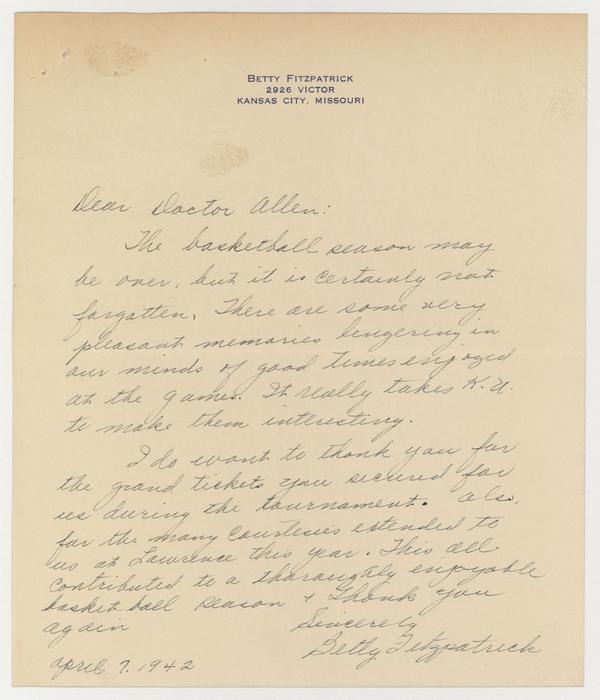 BETTY FITZPATRICK
2926 VICTOR
KANSAS CITY, MISSOURI
Dear Doctor Allen:
The basketball season may
be over, but it is certainly not
forgotten. There are some very
pleasant memories lingering in
our minds of good times enjoyed
at the games. It really takes K.U.
to make them interesting.
I do want to thank you for
the grand tickets you secured for
us during the tournament. Also,
for the many courtesies extended to
us at Lawrence this year. This all
contributed to a thoroughly enjoyable
basket-ball season & thank you
again
Sincerely
Betty Fitzpatrick
April 7, 1942